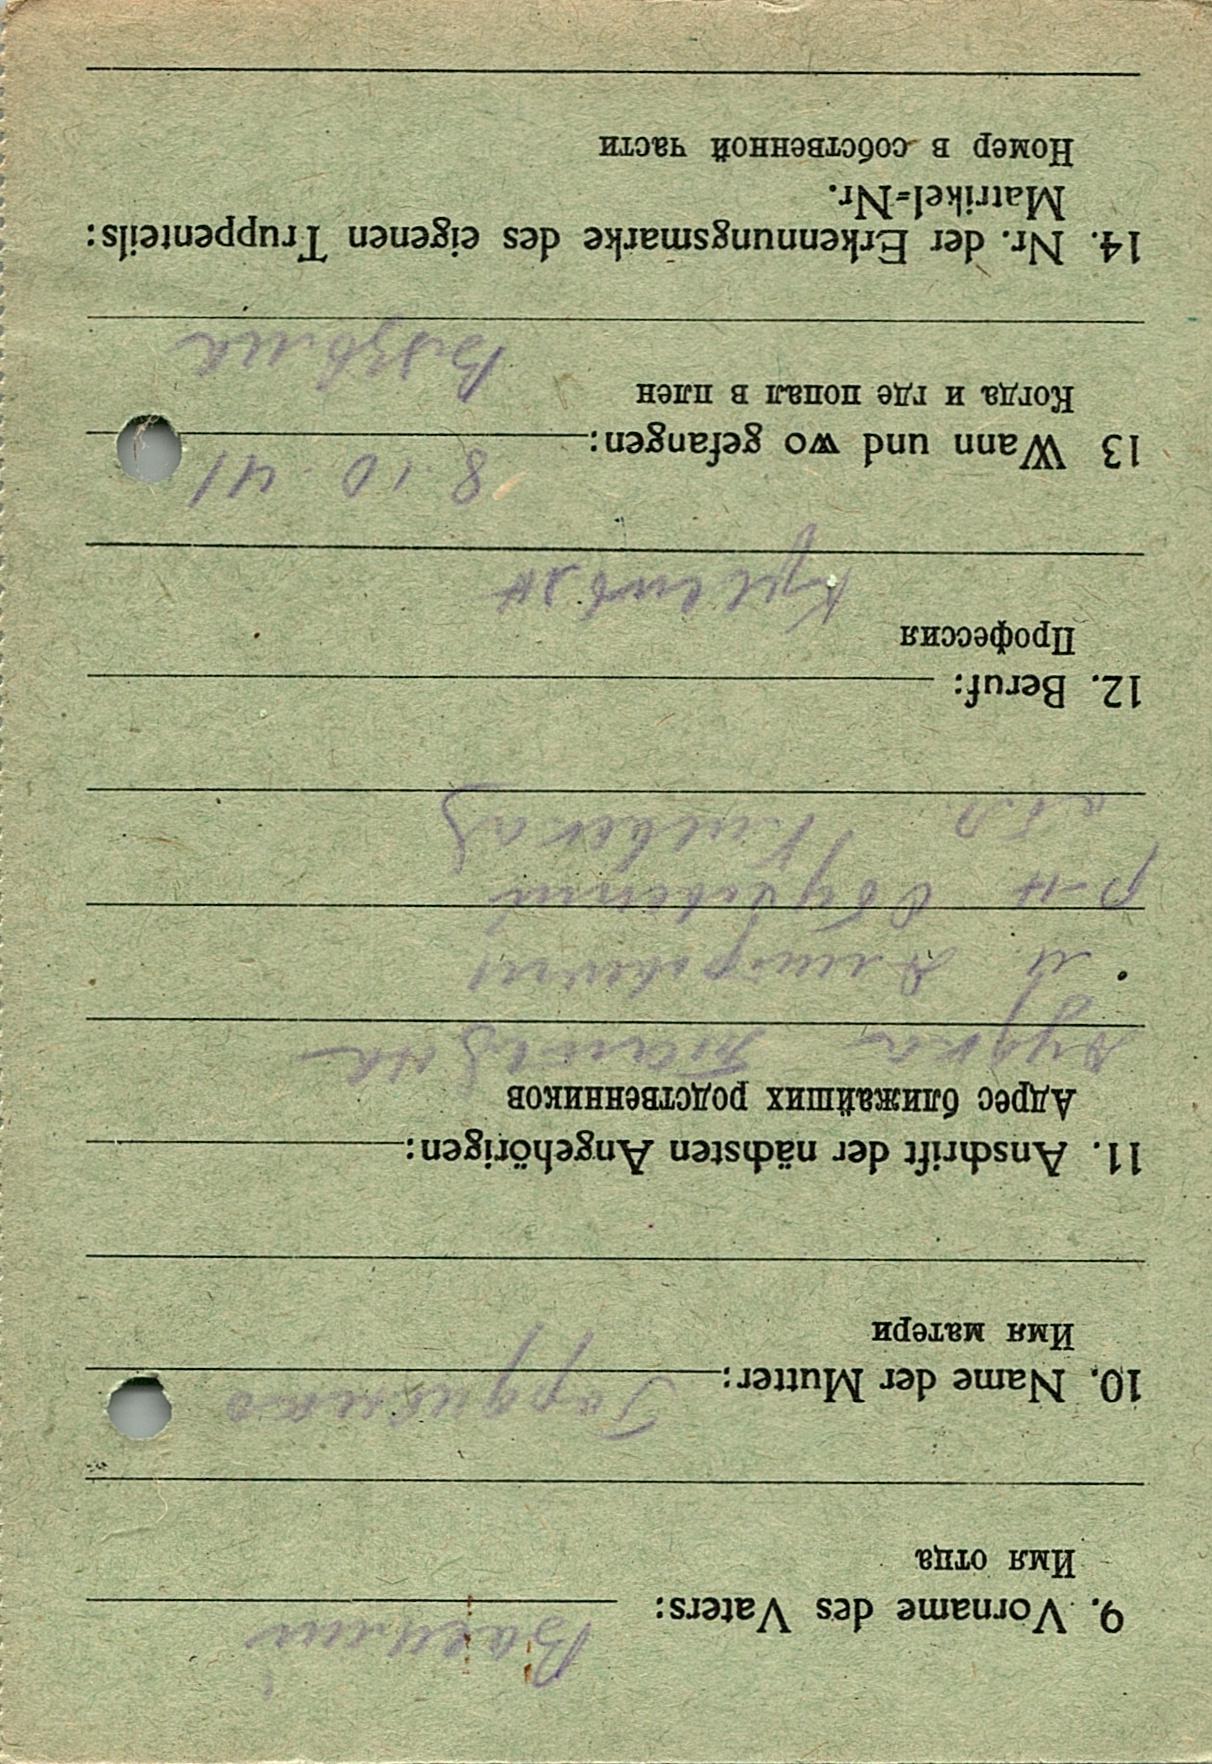 9. Vorname des Vaters: Василий
Имя отца
10. Name der Mutter:
Имя матери
11. Anschrift der nächsten Angehörigen:
Адрес ближайших родственников
м.
р-н
обл. Киевская
12. Beruf:
Профессия
13 Wann und wo gefangen: 8 10 41
Когда и где попал в плен
Вязьма
14. Nr. der Erkennungsmarke des eigenen Truppenteils:
Matrikel=Nr.
Номер в собственной части